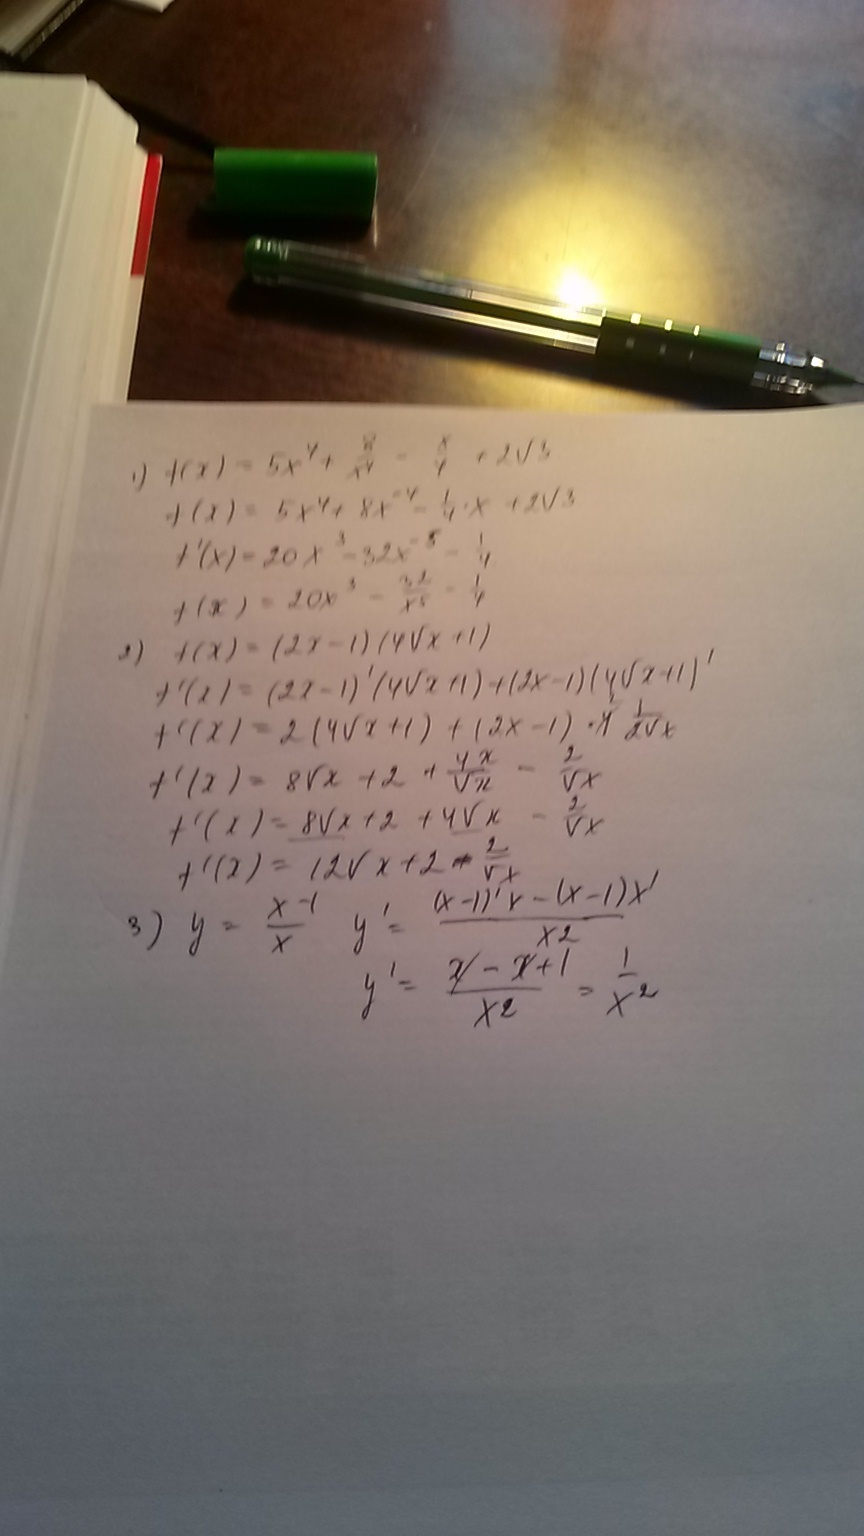 1) f(x) = 5x⁴ + 8/x⁴ - x/4 + 2√3
f(x) = 5x⁴ + 8x⁻⁴ - 1/4·x + 2√3
f'(x) = 20x³ - 32x⁻⁵ - 1/4
f(x) = 20x³ - 32/x⁵ - 1/4
2) f(x) = (2x-1)(4√x+1)
f'(x) = (2x-1)'(4√x+1)+(2x-1)(4√x+1)'
f'(x) = 2(4√x+1) + (2x-1)·4 1/2√x
f'(x) = 8√x + 2 + 4x/√x - 2/√x
f'(x) = 8√x + 2 + 4√x - 2/√x
f'(x) = 12√x + 2 - 2/√x
3) y = x-1/x y' = (x-1)'x-(x-1)x'/x²
y' = x-x+1/x² = 1/x²